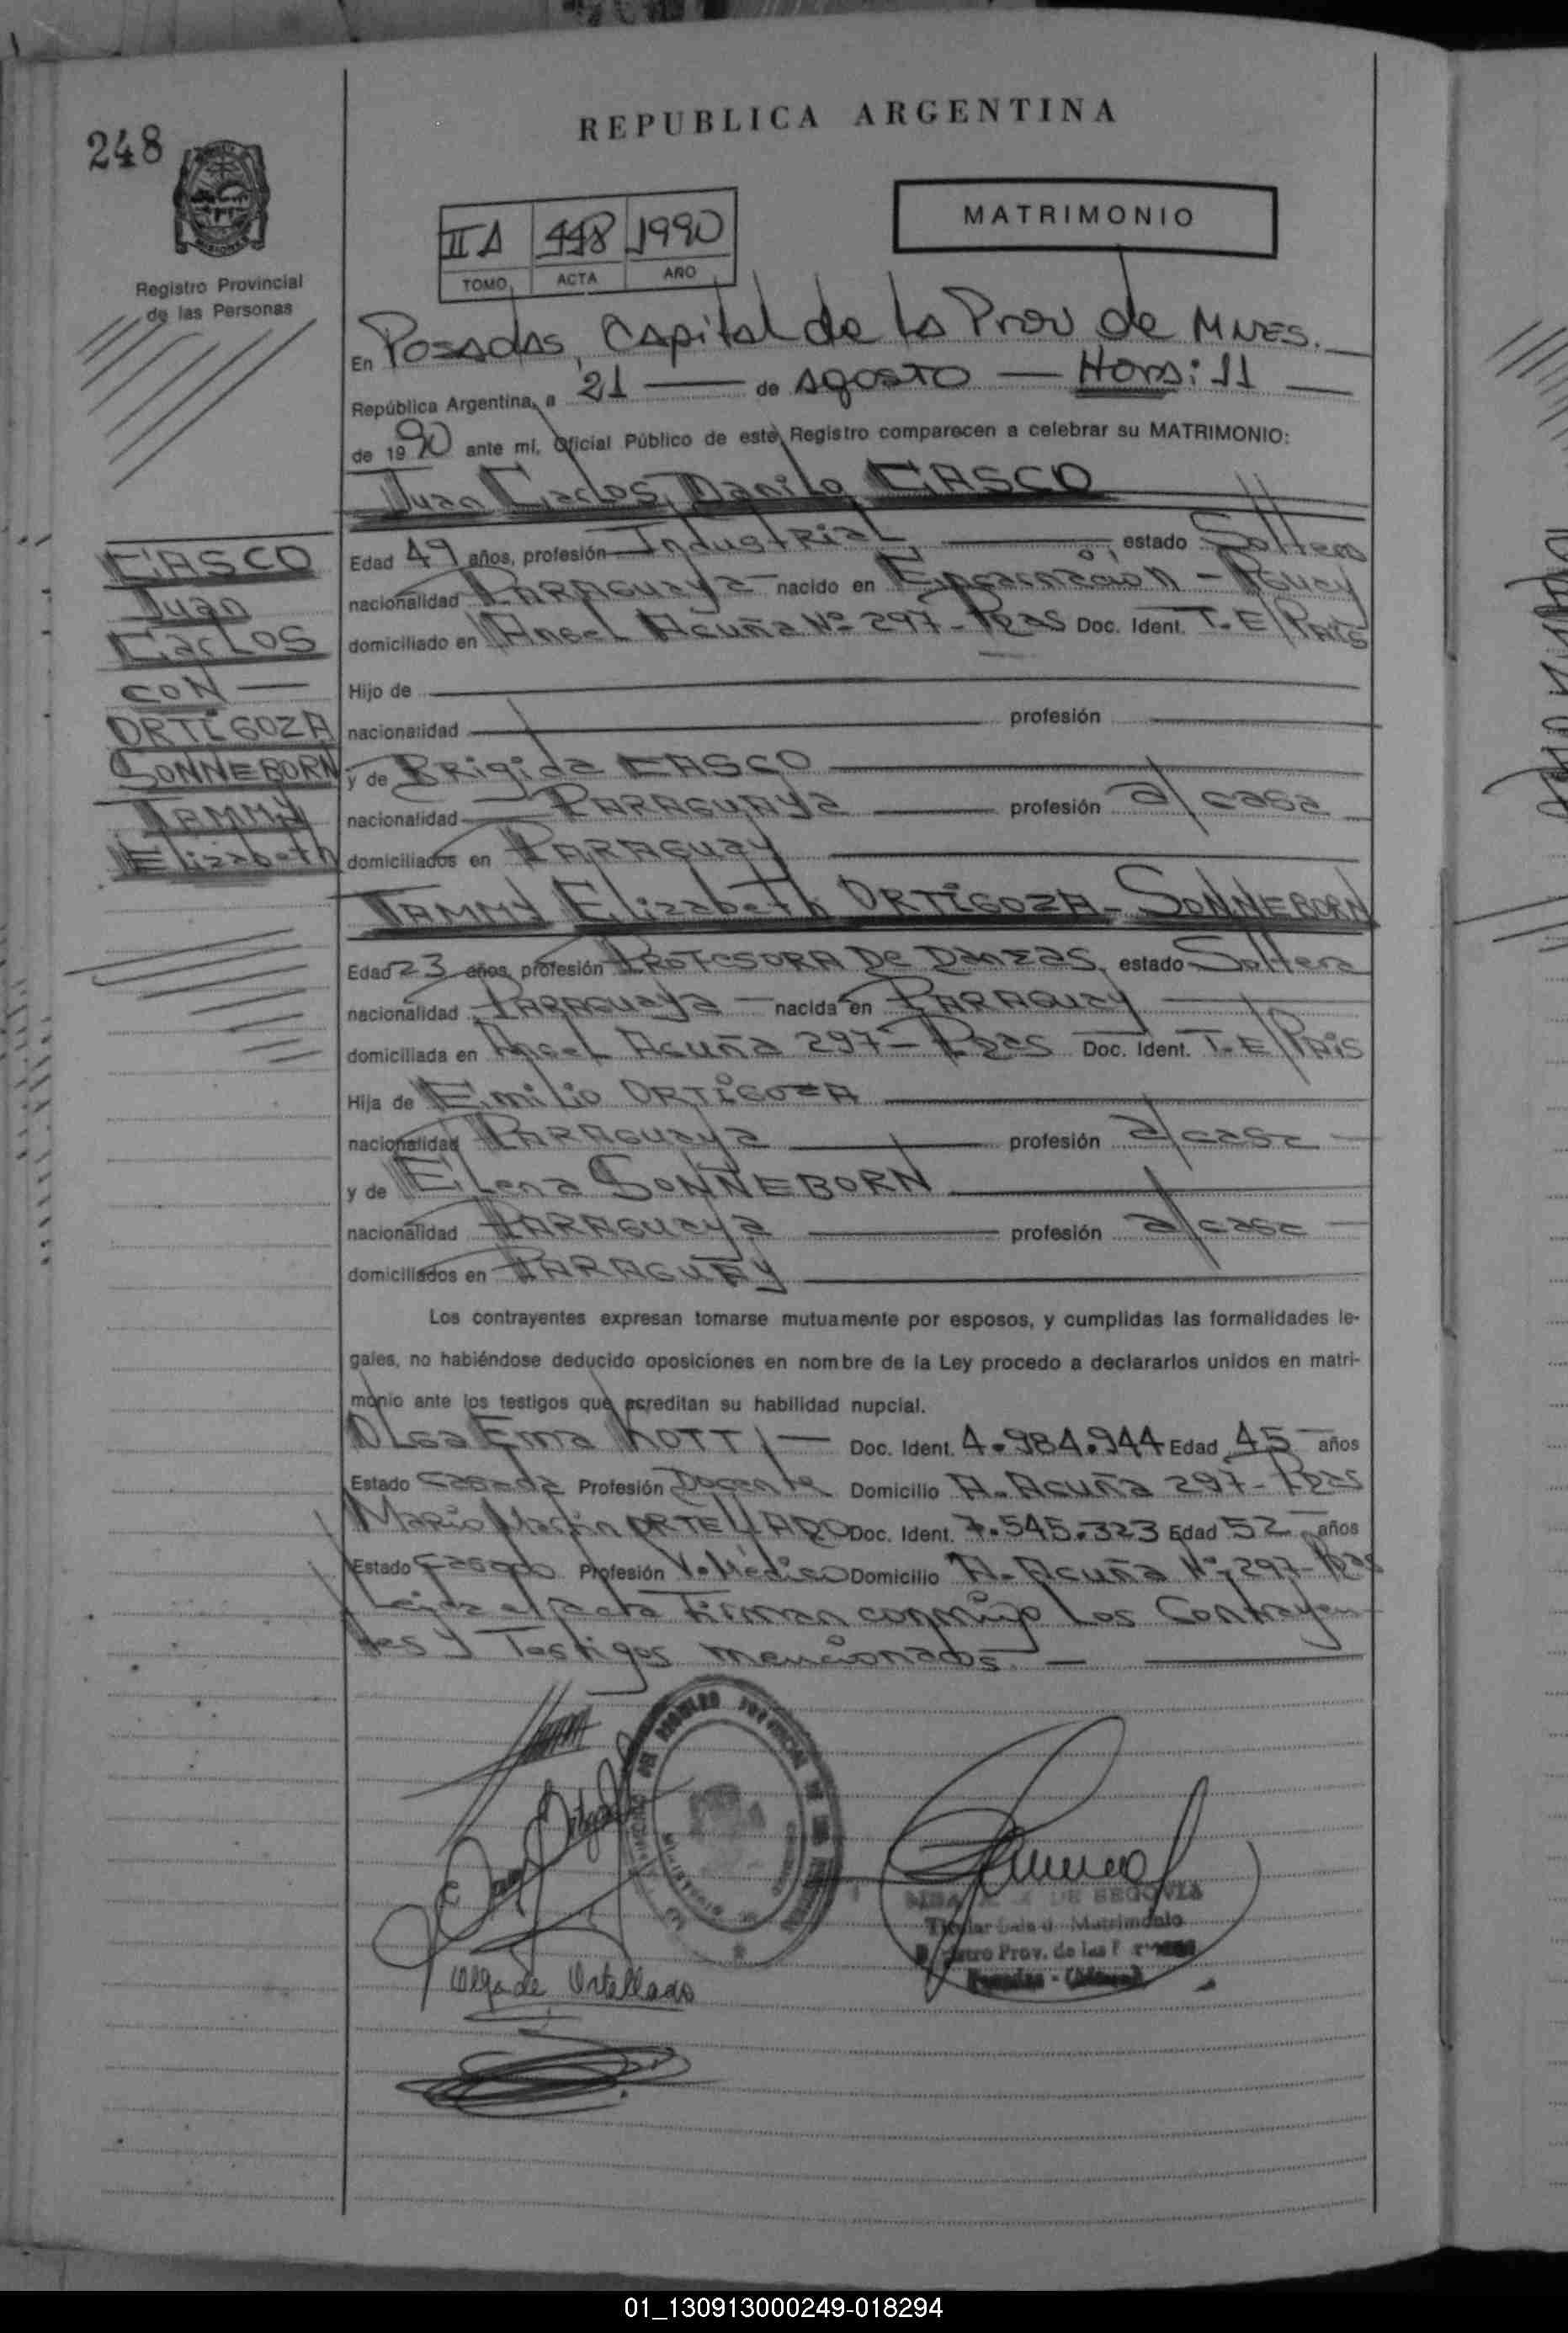 248
REPUBLICA ARGENTINA
MATRIMONIO
II A 448 1990
TOMO ACTA AÑO
Registro Provincial
de las Personas
En Posadas, Capital de la Prov de MNES.
República Argentina, a 21 de Agosto Hora: 11
de 1990 ante mí, Oficial Público de este Registro comparecen a celebrar su MATRIMONIO:
Juan Carlos Danilo CASCO
Edad 49 años, profesión Industrial, estado Soltero
nacionalidad PARAGUAYA nacido en Encarnación - Pguay
domiciliado en Angel Acuña Nº 297 - Pdas Doc. Ident. T.E/PAIS
Hijo de
nacionalidad profesión
y de Brigida CASCO
nacionalidad PARAGUAYA profesión a/casa
domiciliados en PARAGUAY
CASCO
Juan
Carlos
CON
ORTIGOZA
SONNEBORN
TAMMY
Elizabeth
TAMMY Elizabeth ORTIGOZA - SONNEBORN
Edad 23 años, profesión PROFESORA De Danzas, estado Soltera
nacionalidad PARAGUAYA nacida en PARAGUAY
domiciliada en Angel Acuña 297 - Pdas Doc. Ident. T.E/PAIS
Hija de Emilio ORTIGOZA
nacionalidad PARAGUAYA profesión a/casa
y de Elena SONNEBORN
nacionalidad PARAGUAYA profesión a/casa
domiciliados en PARAGUAY
Los contrayentes expresan tomarse mutuamente por esposos, y cumplidas las formalidades le-
gales, no habiéndose deducido oposiciones en nombre de la Ley procedo a declararlos unidos en matri-
monio ante los testigos que acreditan su habilidad nupcial.
Olga Ema KOTT Doc. Ident. 4.984.944 Edad 45 años
Estado casada Profesión Docente Domicilio A. Acuña 297 - Pdas
Mario Martin ORTELLADO Doc. Ident. 7.545.323 Edad 52 años
Estado casado Profesión V. Médico Domicilio A. Acuña Nº 297 - Pdas
Leída el acta Firman conmigo Los Contrayen-
tes y Testigos mencionados.
Olga de Ortellado
DE SEGOVIA
Titular Sala d. Matrimonio
Prov. de las
Posadas -
01_130913000249-018294